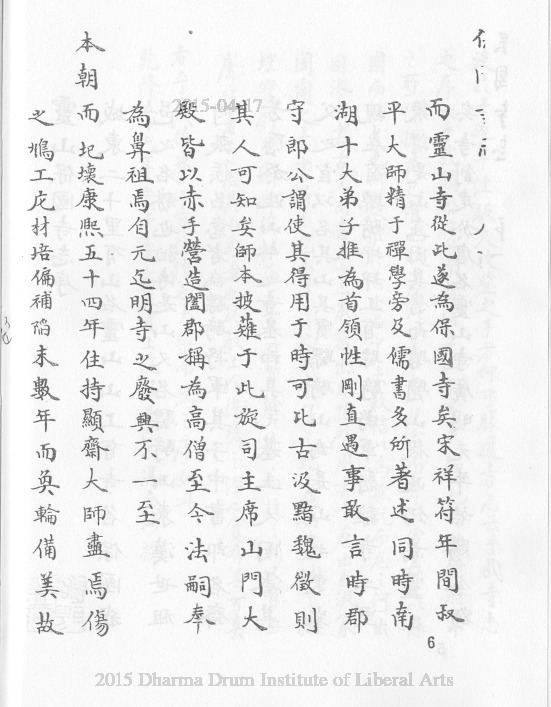 而靈山寺從此遂為保國寺矣宋祥符年間叔
平大師精于禪學旁及儒書多所著述同時南
湖十大弟子推為首領性剛直遇事敢言時郡
守郎公謂使其得用于時可比古汲黯魏徵則
其人可知矣師本披薙于此旋司主席山門大
殿皆以赤手營造闔郡稱為高僧至今法嗣奉
為鼻祖焉自元迄明寺之廢興不一至
本朝而圮壞康熙五十四年住持顯齋大師盡焉傷
之鳩工庀材培偏補陷未數年而奐輪備美故
6
2015-04-17
2015 Dharma Drum Institute of Liberal Arts